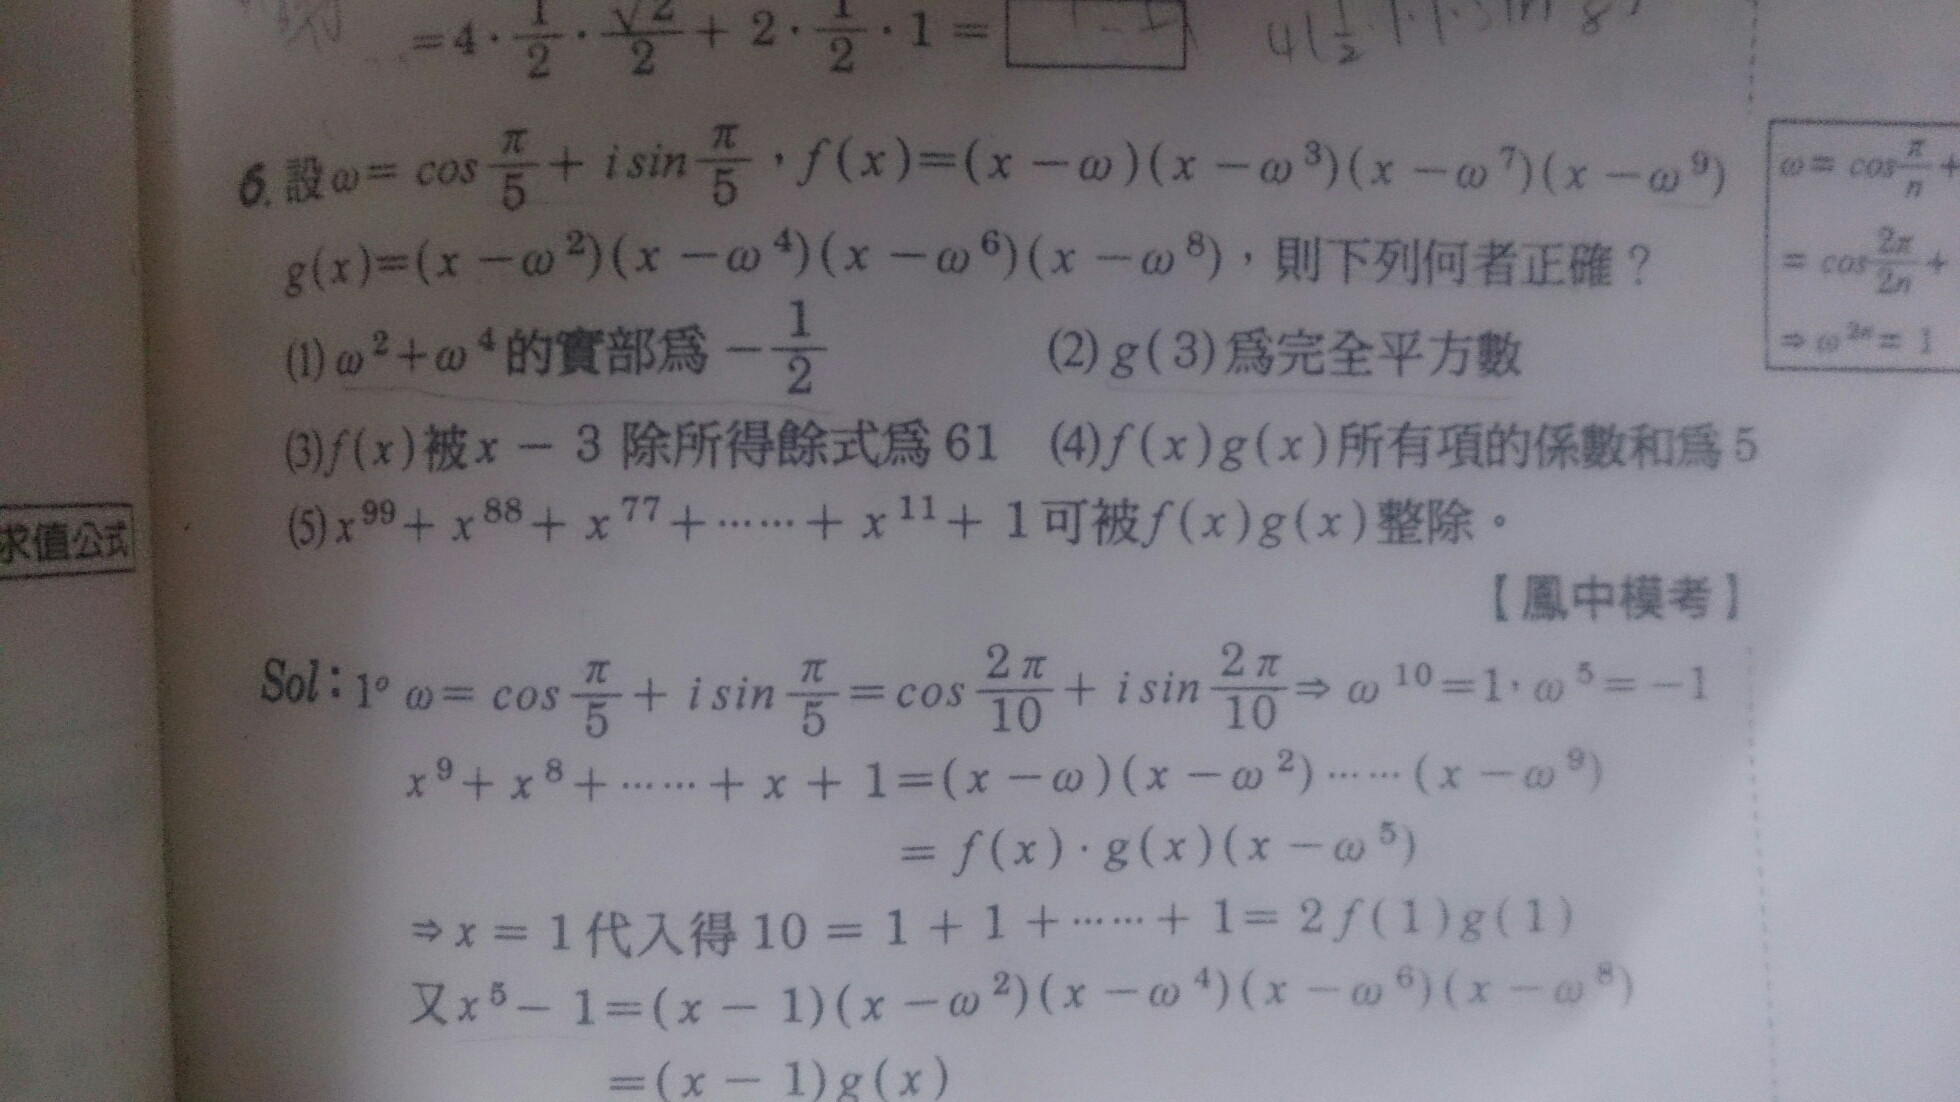 =4·\frac{1}{2}·\frac{\sqrt{2}}{2}+2·\frac{1}{2}·1=
6. 設ω=cos\frac{π}{5}+isin\frac{π}{5},f(x)=(x-ω)(x-ω^3)(x-ω^7)(x-ω^9)
g(x)=(x-ω^2)(x-ω^4)(x-ω^6)(x-ω^8),則下列何者正確?
(1)ω^2+ω^4的實部爲-\frac{1}{2} (2)g(3)爲完全平方數
(3)f(x)被x-3除所得餘式爲61 (4)f(x)g(x)所有項的係數和爲5
(5)x^{99}+x^{88}+x^{77}+……+x^{11}+1可被f(x)g(x)整除。
【鳳中模考】
Sol:1° ω=cos\frac{π}{5}+isin\frac{π}{5}=cos\frac{2π}{10}+isin\frac{2π}{10}⇒ω^{10}=1,ω^5=-1
x^9+x^8+……+x+1=(x-ω)(x-ω^2)……(x-ω^9)
=f(x)·g(x)(x-ω^5)
⇒x=1代入得10=1+1+……+1=2f(1)g(1)
又x^5-1=(x-1)(x-ω^2)(x-ω^4)(x-ω^6)(x-ω^8)
=(x-1)g(x)
ω=cos\frac{π}{n}+
=cos\frac{2π}{2n}+
⇒ω^{2n}=1
求值公式